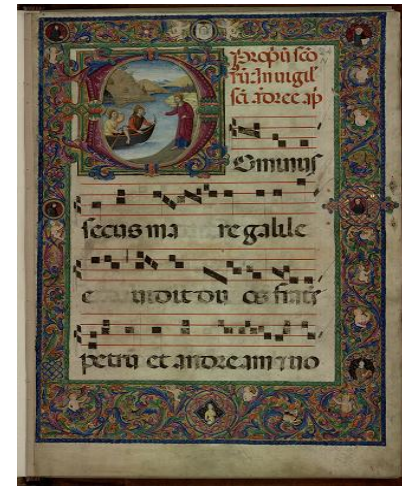 Propriū scō
rū. In uigil'
sc̄i andree ap̄
Ominus
secus ma re galile
e uidit du os frat̄s
petrū et andream